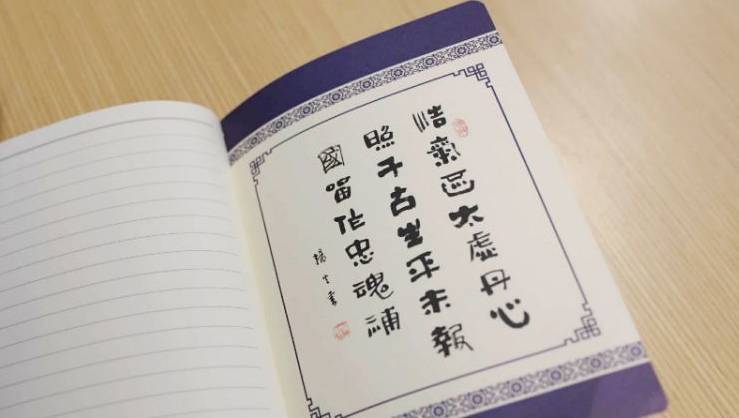 浩氣還太虛丹心
照千古生平未報
國留作忠魂補